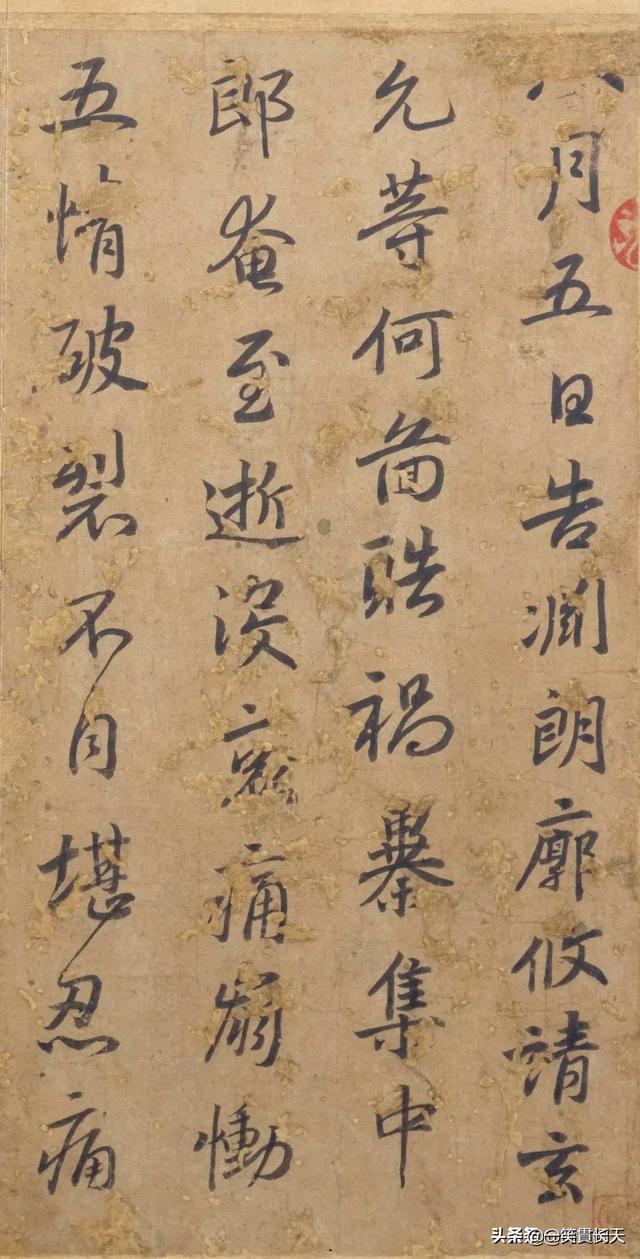 八月五日告淵朗廓攸靖玄
允等何圖酷禍暴集中
郎奄至逝没哀痛崩慟
五情破裂不自堪忍痛
头条 @一笑貫长天